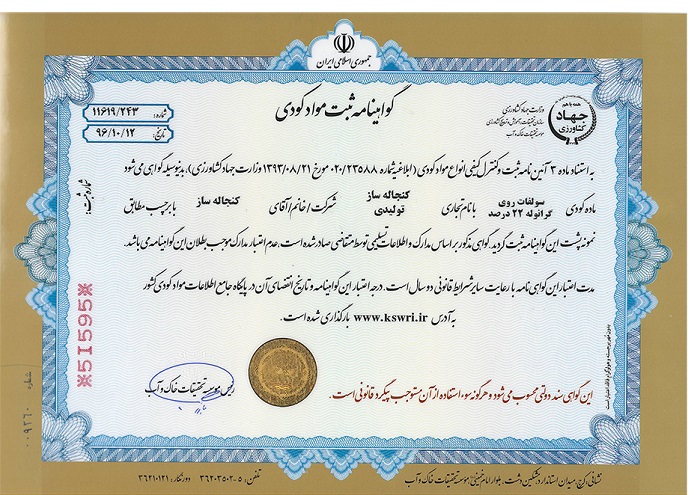 جمهوری اسلامی ایران
گواهینامه ثبت مواد کودی
شماره: ۱۱۶۱۹/۲۴۳
تاریخ: ۹۶/۱۰/۱۲
همه با هم
جهاد
کشاورزی
وزارت جهاد کشاورزی
سازمان تحقیقات، آموزش و ترویج کشاورزی
مؤسسه تحقیقات خاک و آب
به استناد ماده ۳ آئین نامه ثبت و کنترل کیفی انواع مواد کودی (ابلاغیه شماره ۰۲۰/۲۳۵۸۸ مورخ ۱۳۹۳/۰۸/۲۱ وزارت جهاد کشاورزی)، بدینوسیله گواهی می‌شود
ماده کودی سولفات روی گرانوله ۲۲ درصد با نام تجاری کنجاله ساز تولیدی شرکت/خانم/آقای کنجاله ساز با برچسب مطابق
نمونه پشت این گواهینامه ثبت گردید. گواهی مذکور بر اساس مدارک و اطلاعات تسلیمی توسط متقاضی صادر شده است. عدم اعتبار مدارک موجب بطلان این گواهینامه می باشد.
مدت اعتبار این گواهی نامه با رعایت سایر شرایط قانونی دو سال است. درجه اعتبار این گواهینامه و تاریخ انقضای آن در پایگاه جامع اطلاعات مواد کودی کشور
به آدرس www.kswri.ir بارگذاری شده است.
رئیس مؤسسه تحقیقات خاک و آب
این گواهی سند دولتی محسوب می‌شود و هرگونه سوء استفاده از آن مستوجب پیگرد قانونی است.
شماره ثبت:
*5I595*
شماره ۰۰۹۲۶۰
بدون مهر برجسته و هولوگرام فاقد اعتبار است
نشانی: کرج، میدان استاندارد، مشکین دشت، بلوار امام خمینی، مؤسسه تحقیقات خاک و آب تلفن: ۵-۳۶۲۰۳۵۰۲ دورنگار: ۳۶۲۱۰۱۲۱